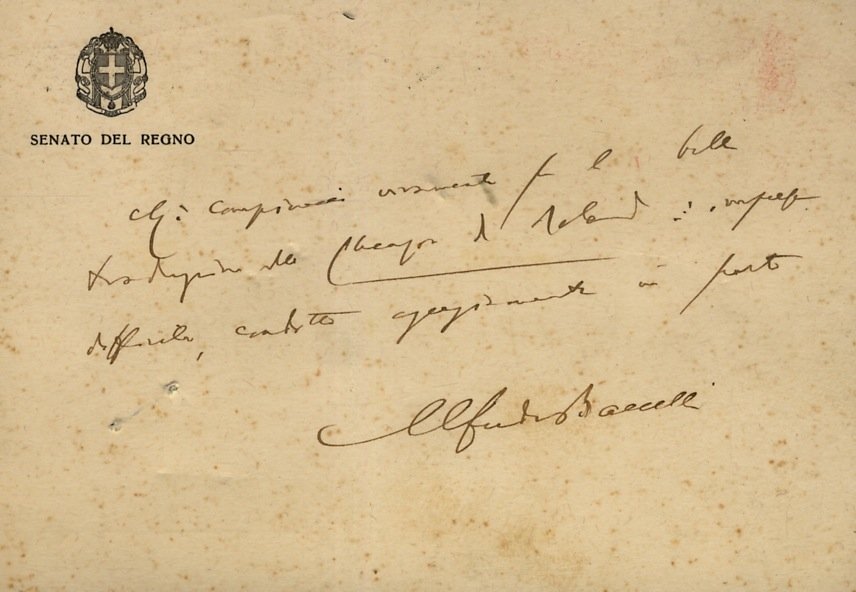 SENATO DEL REGNO
vivamente per la bella
traduzione della Chanson de Roland: impresa
difficile, condotta egregiamente in porto
Alfredo Baccelli